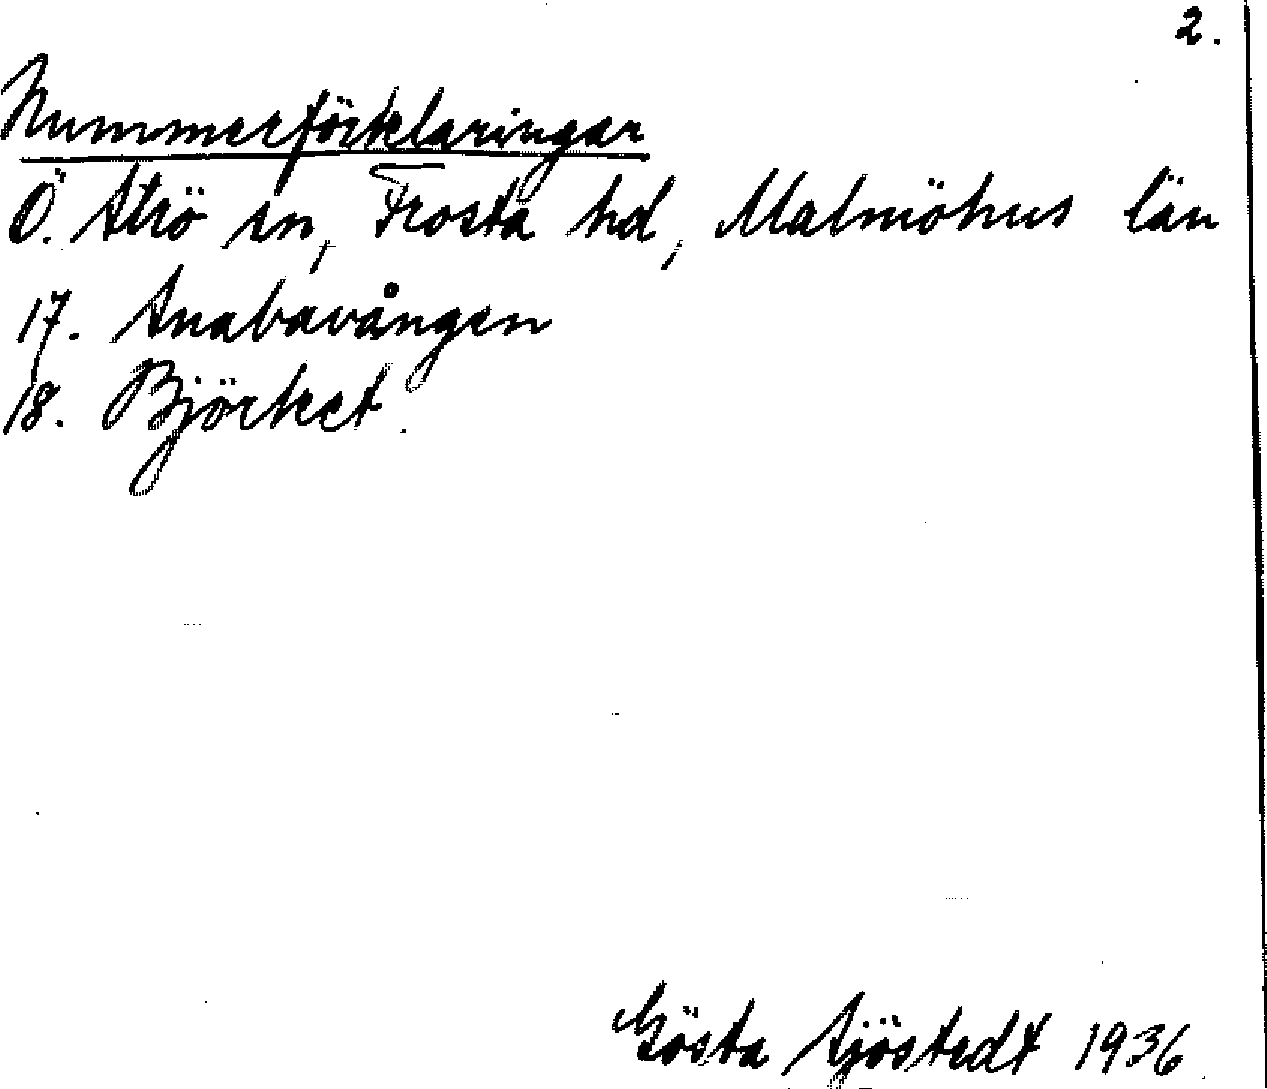 2.
Nummerförklaringar
Ö. Strö sn, Frosta hd, Malmöhus län
17. Snabavången
18. Björket.
Gösta Sjöstedt 1936